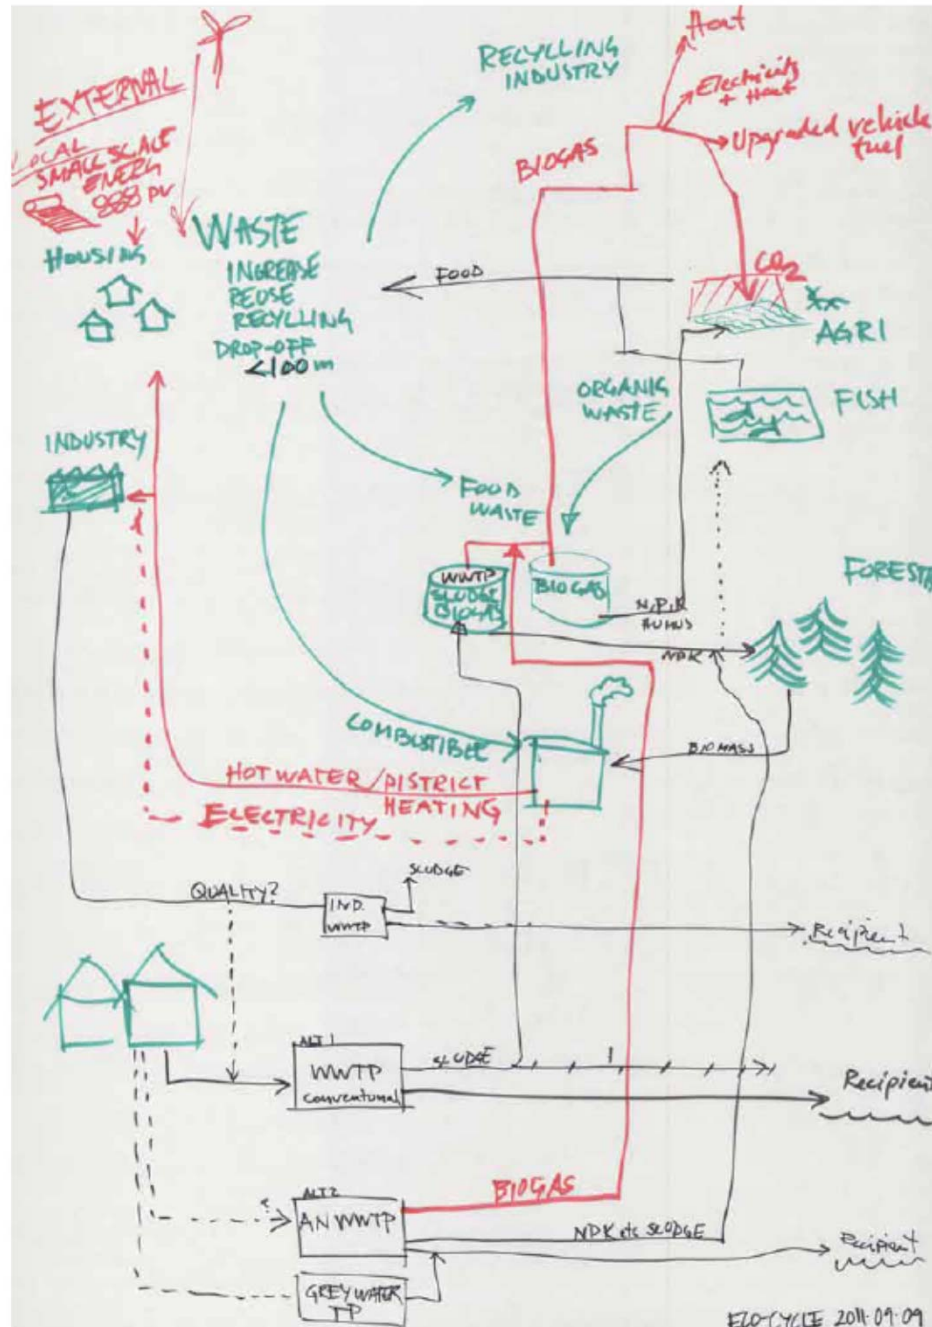 EXTERNAL
LOCAL
SMALL SCALE
ENERG
PV
HOUSING
WASTE
INCREASE
REUSE
RECYLLING
DROP-OFF
<100 m
RECYLLING
INDUSTRY
BIOGAS
Heat
Electricity
+ Heat
Upgraded vehicle
fuel
FOOD
CO2
AGRI
ORGANIC
WASTE
FISH
INDUSTRY
FOOD
WASTE
WWTP
SLUDGE
BIOGAS
BIOGAS
N,P,K
HUMUS
FOREST
NPK
COMBUSTIBLE
BIOMASS
HOT WATER/DISTRICT
HEATING
ELECTRICITY
QUALITY?
SLUDGE
IND.
WWTP
Recipient
ALT 1
WWTP
conventional
SLUDGE
Recipient
ALT 2
AN WWTP
BIOGAS
NPK etc SLUDGE
Recipient
GREYWATER
TP
ECO-CYCLE 2011-09-09